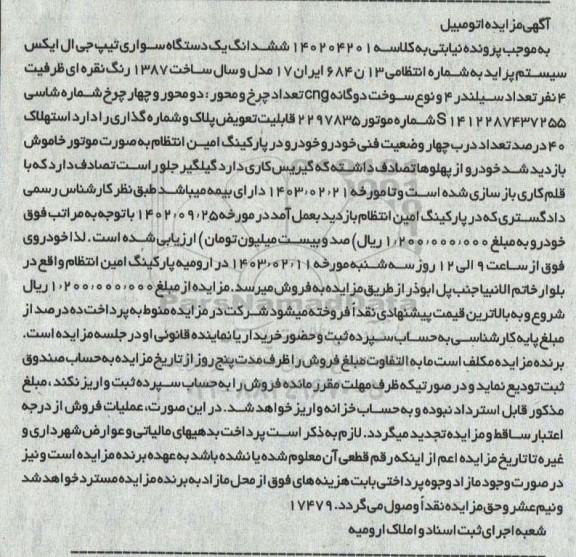 آگهی مزایده اتومبیل
به موجب پرونده نیابتی به کلاسه ۱۴۰۲۰۴۲۰۱ ششدانگ یک دستگاه سواری تیپ جی ال ایکس
سیستم پراید به شماره انتظامی ۱۳ ن ۶۸۴ ایران ۱۷ مدل و سال ساخت ۱۳۸۷ رنگ نقره ای ظرفیت
۴ نفر تعداد سیلندر ۴ و نوع سوخت دوگانه cng تعداد چرخ و محور : دو محور و چهار چرخ شماره شاسی
S۱۴۱۲۲۸۷۴۳۷۲۵۵ شماره موتور ۲۲۹۷۸۳۵ قابلیت تعویض پلاک و شماره گذاری را دارد استهلاک
۴۰ درصد تعداد درب چهار وضعیت فنی خودرو خودرو در پارکینگ امین انتظام به صورت موتور خاموش
بازدید شد خودرو از پهلوها تصادف داشته که گیریس کاری دارد گیلگیر جلو راست تصادف دارد که با
قلم کاری باز سازی شده است و تا مورخه ۱۴۰۳،۰۲،۲۱ دارای بیمه میباشد طبق نظر کارشناس رسمی
دادگستری که در پارکینگ امین انتظام بازدید بعمل آمد در مورخه ۱۴۰۲،۰۹،۲۵ با توجه به مراتب فوق
خودرو به مبلغ ۱,۲۰۰,۰۰۰,۰۰۰ ریال) صد و بیست میلیون تومان) ارزیابی شده است . لذا خودروی
فوق از ساعت ۹ الی ۱۲ روز سه شنبه مورخه ۱۴۰۳،۰۲،۱۱ در ارومیه پارکینگ امین انتظام واقع در
بلوار خاتم الانبیا جنب پل ابوذر از طریق مزایده به فروش میرسد. مزایده از مبلغ ۱,۲۰۰,۰۰۰,۰۰۰ ریال
شروع و به بالاترین قیمت پیشنهادی نقداً فروخته میشود شرکت در مزایده منوط به پرداخت ده درصد از
مبلغ پایه کارشناسی به حساب سپرده ثبت و حضور خریدار یا نماینده قانونی او در جلسه مزایده است.
برنده مزایده مکلف است ما به التفاوت مبلغ فروش را ظرف مدت پنج روز از تاریخ مزایده به حساب صندوق
ثبت تودیع نماید و در صورتیکه ظرف مهلت مقرر مانده فروش را به حساب سپرده ثبت واریز نکند ، مبلغ
مذکور قابل استرداد نبوده و به حساب خزانه واریز خواهد شد. در این صورت، عملیات فروش از درجه
اعتبار ساقط و مزایده تجدید میگردد. لازم به ذکر است پرداخت بدهیهای مالیاتی و عوارض شهرداری و
غیره تا تاریخ مزایده اعم از اینکه رقم قطعی آن معلوم شده یا نشده باشد به عهده برنده مزایده است و نیز
در صورت وجود مازاد وجوه پرداختی بابت هزینه های فوق از محل مازاد به برنده مزایده مسترد خواهد شد
و نیم عشر و حق مزایده نقداً وصول می گردد. ۱۷۴۷۹
شعبه اجرای ثبت اسناد و املاک ارومیه